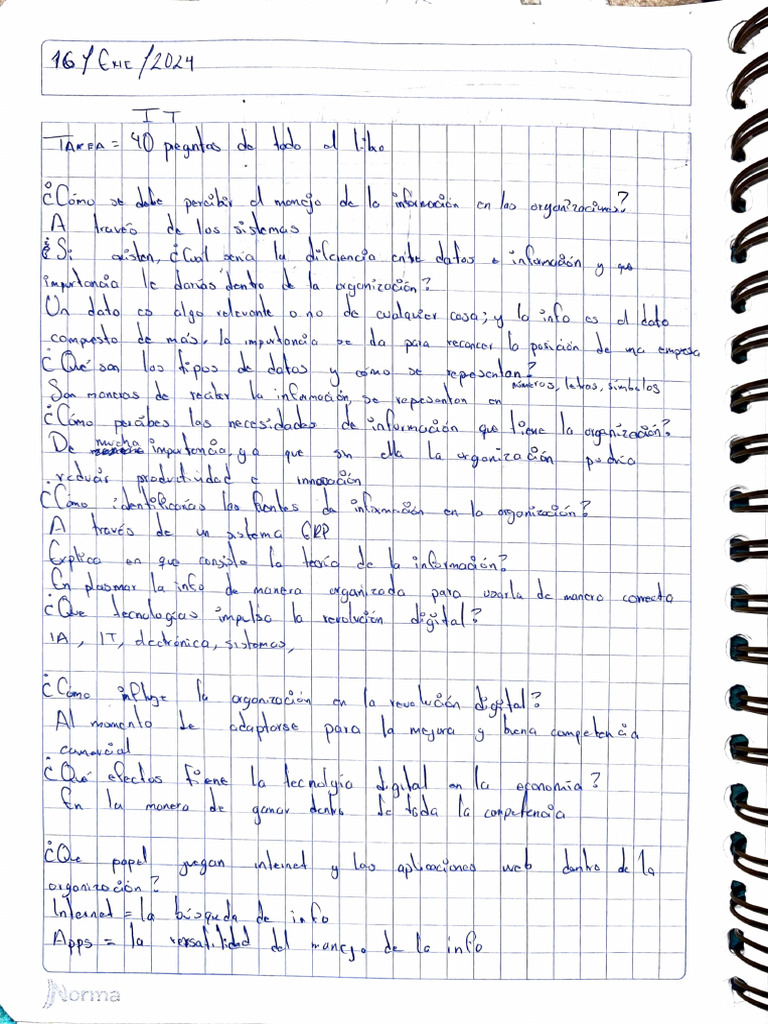 16/Ene/2024
IT
TAREA = 40 pregntas de todo el libro
¿Cómo se debe percibir el manejo de la información en las organizaciones?
A través de los sistemas
¿Si existen, ¿Cual seria la diferencia entre datos e información y que
importancia le darias dentro de la organización?
Un dato es algo relevante o no de cualquier cosa; y la info es el dato
compuesto de más, la importancia se da para reconocer la posición de una empresa
¿Qué son los tipos de datos y cómo se representan?
Son maneras de recibir la información, se representan en números, letras, símbolos
¿Cómo percibes las necesidades de información que tiene la organización?
De mucha importancia, ya que sin ella la organización podria
reducir productividad e innovación
¿Cómo identificarias las fuentes de información en la organización?
A través de un sistema ERP
Explica en que consiste la teoría de la información?
En plasmar la info de manera organizada para usarla de manera correcta
¿Que tecnologías impulsa la revolución digital?
IA, IT, electrónica, sistemas,
¿Cómo influye la organización en la revolución digital?
Al momento de adaptarse para la mejora y buena competencia
comercial
¿Qué efectos tiene la tecnolgía digital en la economía?
En la manera de ganar dentro de toda la competencia
¿Que papel juegan internet y las aplicaciones web dentro de la
organización?
Internet = la búsqueda de info
Apps = la versatilidad del manejo de la info
Norma